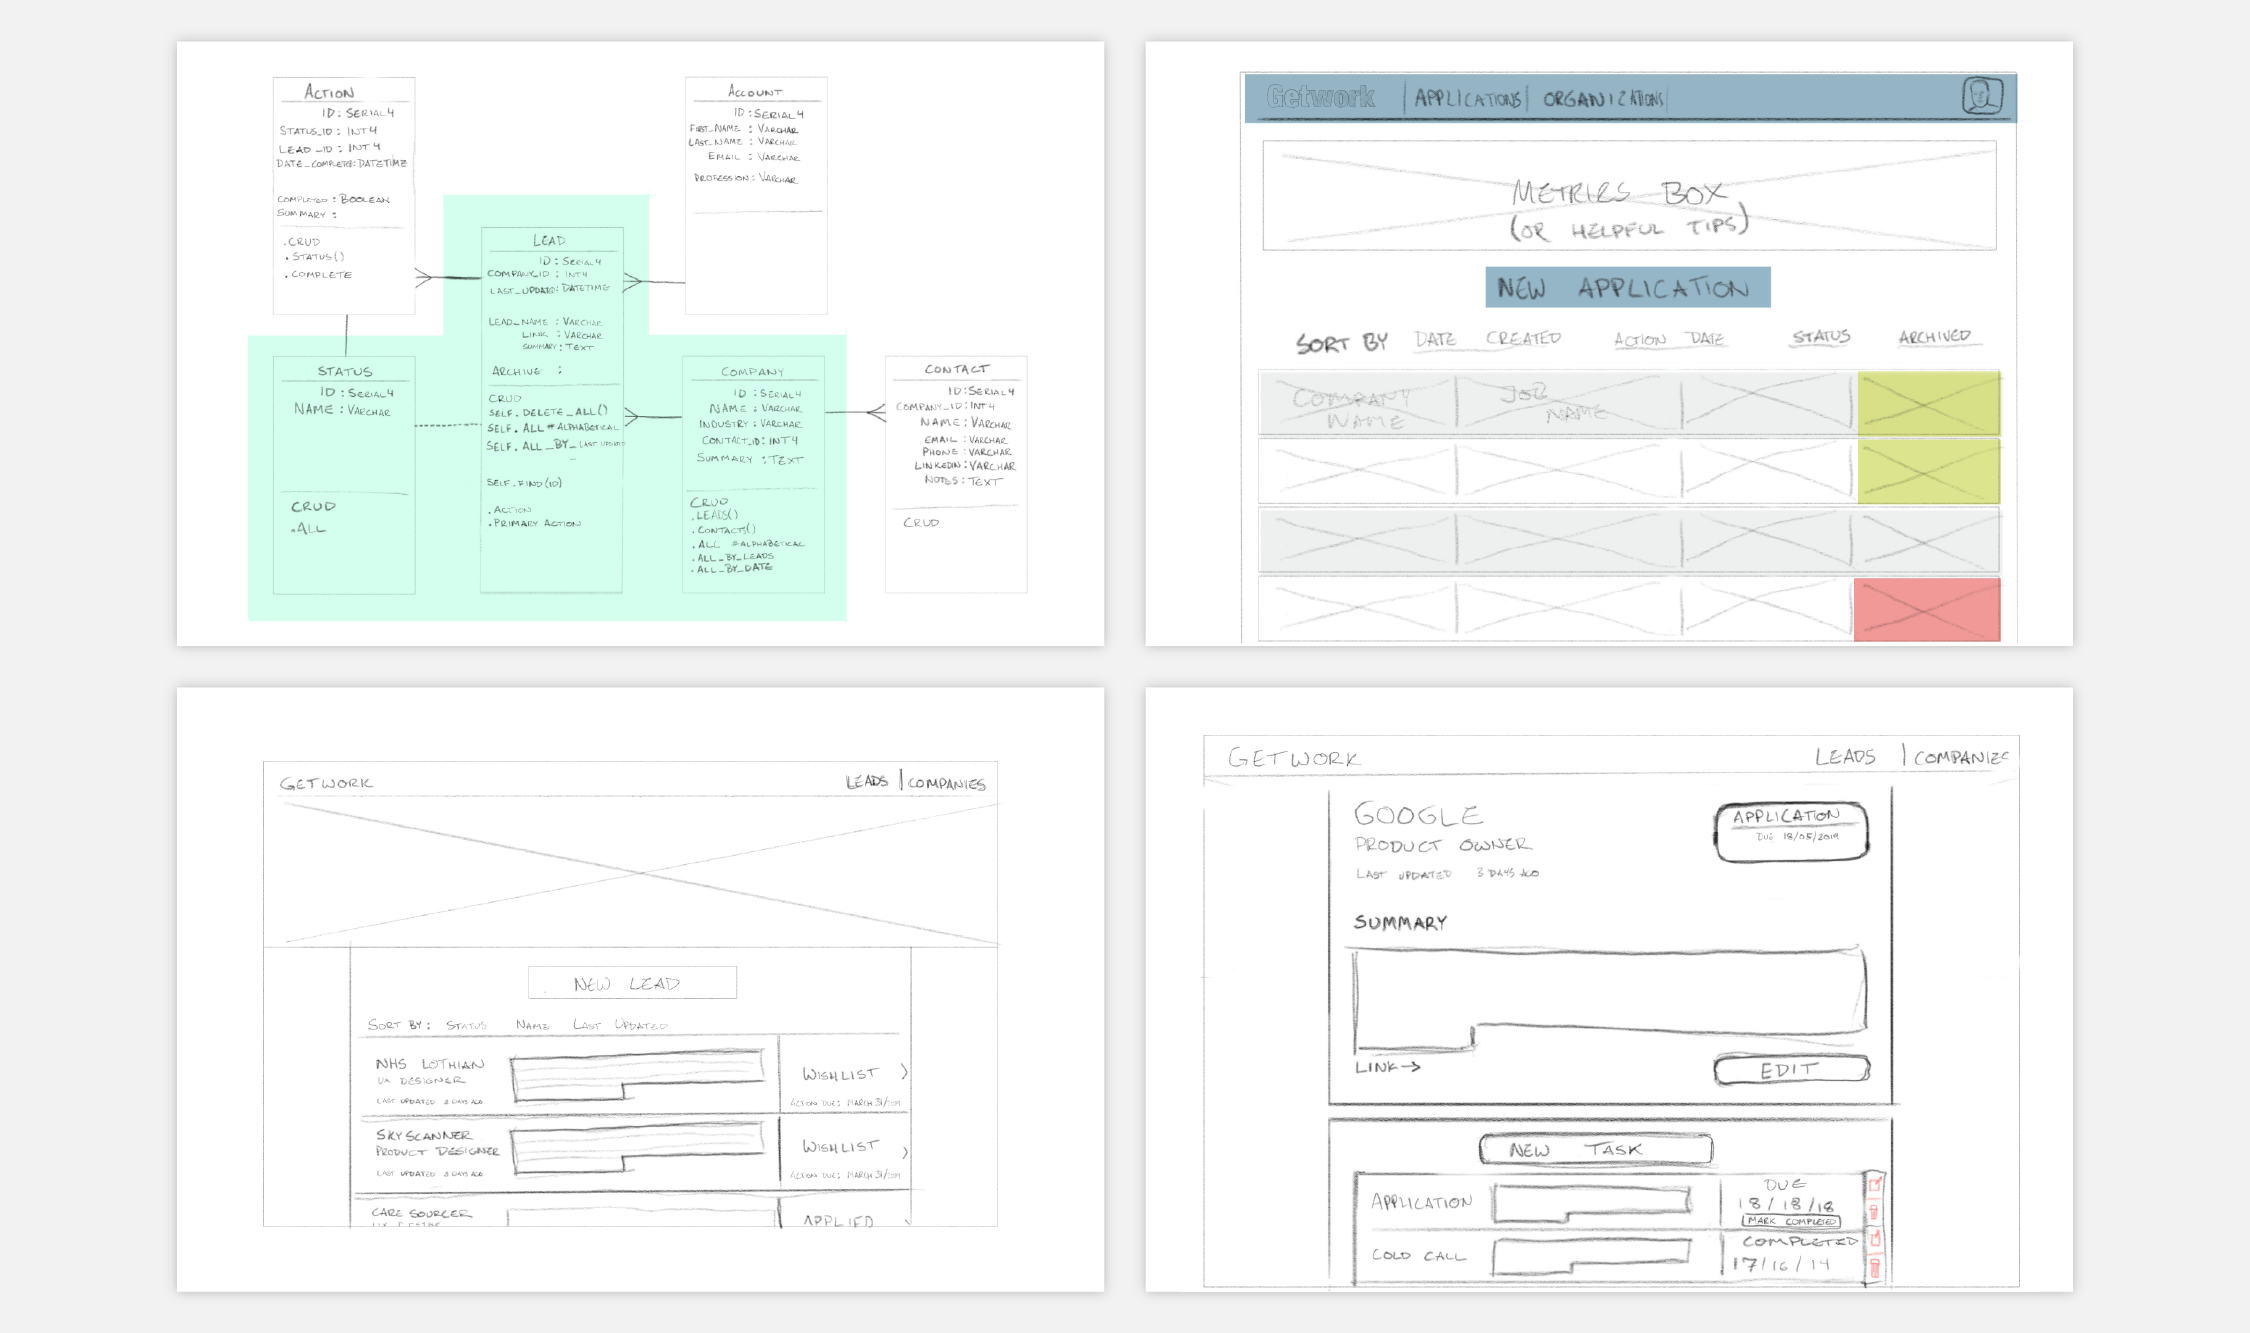 ACTION
ID: SERIAL4
STATUS_ID: INT4
LEAD_ID: INT4
DATE_COMPLETE: DATETIME
COMPLETED: BOOLEAN
SUMMARY:
.CRUD
.STATUS()
.COMPLETE
ACCOUNT
ID: SERIAL4
FIRST_NAME: VARCHAR
LAST_NAME: VARCHAR
EMAIL: VARCHAR
PROFESSION: VARCHAR
LEAD
ID: SERIAL4
COMPANY_ID: INT4
LAST_UPDATED: DATETIME
LEAD_NAME: VARCHAR
LINK: VARCHAR
SUMMARY: TEXT
ARCHIVE:
CRUD
SELF.DELETE_ALL()
SELF.ALL #ALPHABETICAL
SELF.ALL_BY_LAST UPDATED
SELF.FIND(ID)
.ACTION
.PRIMARY ACTION
STATUS
ID: SERIAL4
NAME: VARCHAR
CRUD
.ALL
COMPANY
ID: SERIAL4
NAME: VARCHAR
INDUSTRY: VARCHAR
CONTACT_ID: INT4
SUMMARY: TEXT
CRUD
.LEADS()
.CONTACTS()
.ALL #ALPHABETICAL
.ALL_BY_LEADS
.ALL_BY_DATE
CONTACT
ID: SERIAL4
COMPANY_ID: INT4
NAME: VARCHAR
EMAIL: VARCHAR
PHONE: VARCHAR
LINKEDIN: VARCHAR
NOTES: TEXT
CRUD
Getwork | APPLICATIONS | ORGANIZATIONS |
METRICS BOX
(OR HELPFUL TIPS)
NEW APPLICATION
SORT BY DATE CREATED ACTION DATE STATUS ARCHIVED
COMPANY NAME
JOB NAME
GETWORK LEADS | COMPANIES
NEW LEAD
SORT BY: STATUS NAME LAST UPDATED
NHS LOTHIAN
UX DESIGNER
LAST UPDATED 2 DAYS AGO
WISHLIST >
ACTION DUE: MARCH 31/2019
SKYSCANNER
PRODUCT DESIGNER
LAST UPDATED 3 DAYS AGO
WISHLIST >
ACTION DUE: MARCH 31/2019
CARE SOURCER
APPLIED
GETWORK LEADS | COMPANIES
GOOGLE
PRODUCT OWNER
LAST UPDATED 3 DAYS AGO
APPLICATION
DUE 18/05/2019
SUMMARY
LINK→
EDIT
NEW TASK
APPLICATION
DUE
18/18/18
MARK COMPLETED
COLD CALL
COMPLETED
17/16/14